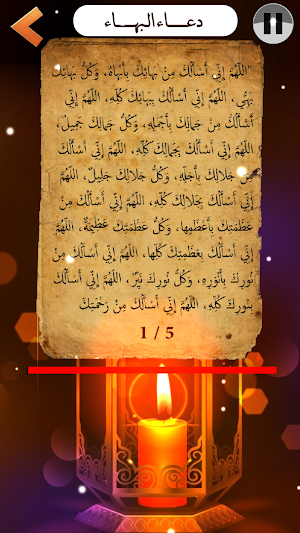 دعـــاء البهـــاء
"اللّهُمَّ إِنِّي أَسْأَلُكَ مِنْ بَهَائِكَ بِأَبْهَاهُ، وَكُلُّ بَهَائِكَ
بَهِيٌّ، اللّهُمَّ إِنِّي أَسْأَلُكَ بِبَهَائِكَ كُلِّهِ، اللّهُمَّ إِنِّي
أَسْأَلُكَ مِنْ جَمَالِكَ بِأَجْمَلِهِ، وَكُلُّ جَمَالِكَ جَمِيلٌ،
اللّهُمَّ إِنِّي أَسْأَلُكَ بِجَمَالِكَ كُلِّهِ، اللّهُمَّ إِنِّي أَسْأَلُكَ
مِنْ جَلالِكَ بِأَجَلِّهِ، وَكُلُّ جَلالِكَ جَلِيلٌ، اللّهُمَّ
إِنِّي أَسْأَلُكَ بِجَلالِكَ كُلِّهِ، اللّهُمَّ إِنِّي أَسْأَلُكَ مِنْ
عَظَمَتِكَ بِأَعْظَمِهَا، وَكُلُّ عَظَمَتِكَ عَظِيمَةٌ، اللّهُمَّ
إِنِّي أَسْأَلُكَ بِعَظَمَتِكَ كُلِّهَا، اللّهُمَّ إِنِّي أَسْأَلُكَ مِنْ
نُورِكَ بِأَنْوَرِهِ، وَكُلُّ نُورِكَ نَيِّرٌ، اللّهُمَّ إِنِّي أَسْأَلُكَ
بِنُورِكَ كُلِّهِ، اللّهُمَّ إِنِّي أَسْأَلُكَ مِنْ رَحْمَتِكَ
1 / 5